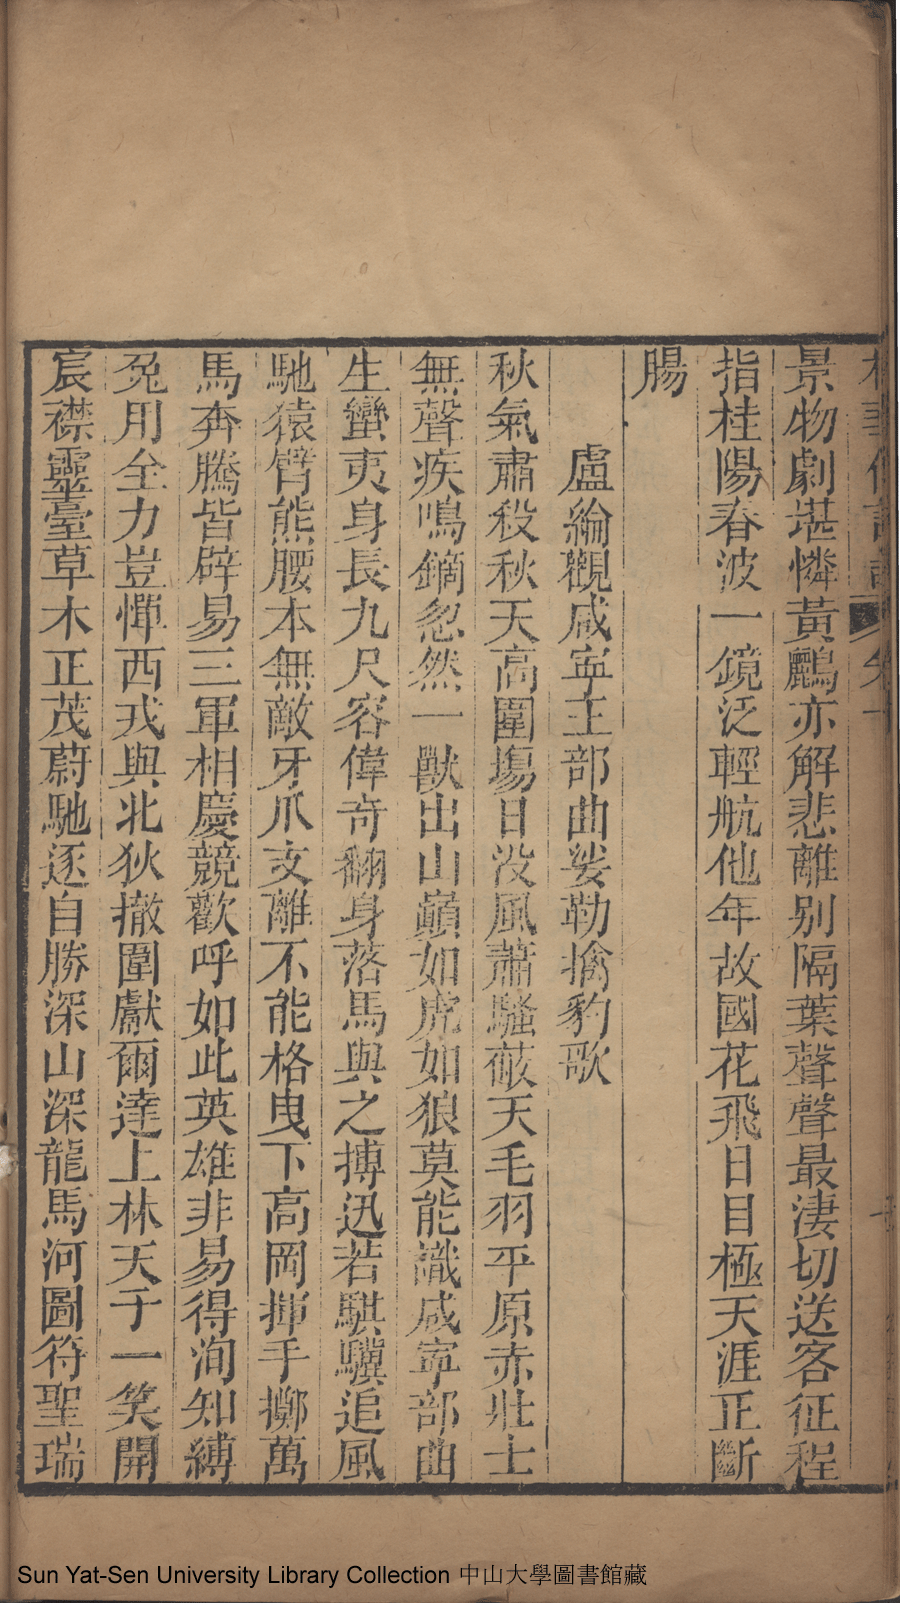 景物劇堪憐黃鸝亦解悲離別隔葉聲聲最淒切送客征程
指桂陽春波一鏡泛輕航他年故國花飛日目極天涯正斷
腸
盧綸觀咸寧王部曲娑勒擒豹歌
秋氣肅殺秋天高圍場日没風蕭騷蔽天毛羽平原赤壯士
無聲疾鳴鏑忽然一獸出山巔如虎如狼莫能識咸寧部曲
生蠻夷身長九尺容偉奇翻身落馬與之搏迅若騏驥追風
馳猿臂熊腰本無敵牙爪支離不能格曳下高岡揮手擲萬
馬奔騰皆辟易三軍相慶競歡呼如此英雄非易得洵知縛
兔用全力豈憚西戎與北狄撤圍獻爾達上林天子一笑開
宸襟靈臺草木正茂蔚馳逐自勝深山深龍馬河圖符聖瑞
Sun Yat-Sen University Library Collection 中山大學圖書館藏